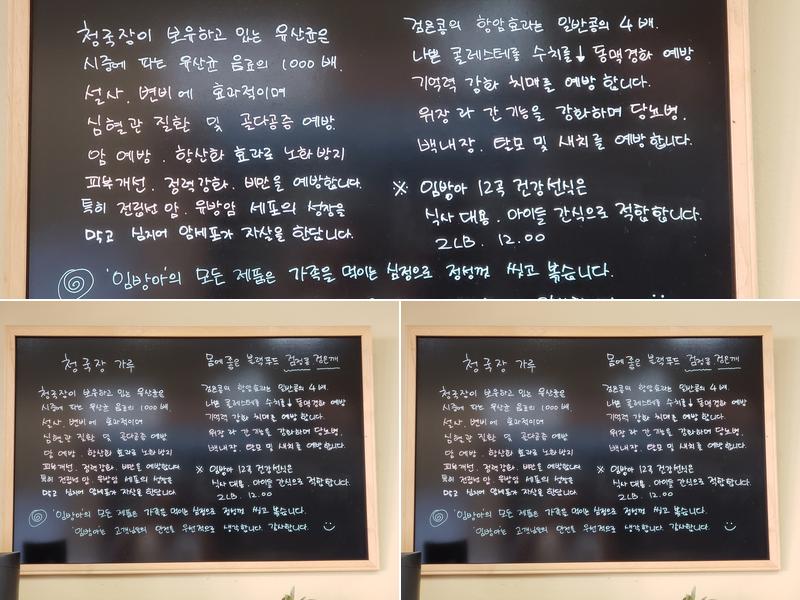 청국장이 보유하고 있는 유산균은
시중에 파는 유산균 음료의 1000배.
설사. 변비에 효과적이며
심혈관 질환 및 골다공증 예방.
암 예방. 항산화 효과로 노화방지
피부개선. 정력강화. 비만을 예방합니다.
특히 전립선 암. 유방암 세포의 성장을
막고 심지어 암세포가 자살을 한답니다.
검은콩의 항암효과는 일반콩의 4배.
나쁜 콜레스테롤 수치를↓ 동맥경화 예방
기억력 강화 치매를 예방합니다.
위장과 간 기능을 강화하며 당뇨병.
백내장. 탈모 및 새치를 예방합니다.
※ 임방아 12곡 건강선식은
식사대용. 아이들 간식으로 적합합니다.
2LB. 12.00
'임방아'의 모든 제품은 가족을 먹이는 심정으로 정성껏 씻고 볶습니다.
청국장 가루
청국장이 보유하고 있는 유산균은
시중에 파는 유산균 음료의 1000배.
설사. 변비에 효과적이며
심혈관 질환 및 골다공증 예방
암 예방. 항산화 효과로 노화방지
피부개선. 정력강화. 비만을 예방합니다
특히 전립선 암. 유방암 세포의 성장을
막고 심지어 암세포가 자살을 한답니다.
몸에 좋은 블랙푸드 검정콩 검은깨
검은콩의 항암효과는 일반콩의 4배.
나쁜 콜레스테롤 수치를↓ 동맥경화 예방
기억력 강화 치매를 예방합니다.
위장과 간 기능을 강화하며 당뇨병.
백내장. 탈모 및 새치를 예방합니다.
※ 임방아 12곡 건강선식은
식사대용. 아이들 간식으로 적합합니다.
2LB. 12.00
'임방아'의 모든 제품은 가족을 먹이는 심정으로 정성껏 씻고 볶습니다.
'임방아'는 고객님들의 안전을 우선적으로 생각합니다. 감사합니다.
청국장 가루
청국장이 보유하고 있는 유산균은
시중에 파는 유산균 음료의 1000배.
설사. 변비에 효과적이며
심혈관 질환 및 골다공증 예방
암 예방. 항산화 효과로 노화방지
피부개선. 정력강화. 비만을 예방합니다
특히 전립선 암. 유방암 세포의 성장을
막고 심지어 암세포가 자살을 한답니다.
몸에 좋은 블랙푸드 검정콩 검은깨
검은콩의 항암효과는 일반콩의 4배.
나쁜 콜레스테롤 수치를↓ 동맥경화 예방
기억력 강화 치매를 예방합니다.
위장과 간 기능을 강화하며 당뇨병.
백내장. 탈모 및 새치를 예방합니다.
※ 임방아 12곡 건강선식은
식사대용. 아이들 간식으로 적합합니다.
2LB. 12.00
'임방아'의 모든 제품은 가족을 먹이는 심정으로 정성껏 씻고 볶습니다.
'임방아'는 고객님들의 안전을 우선적으로 생각합니다. 감사합니다.